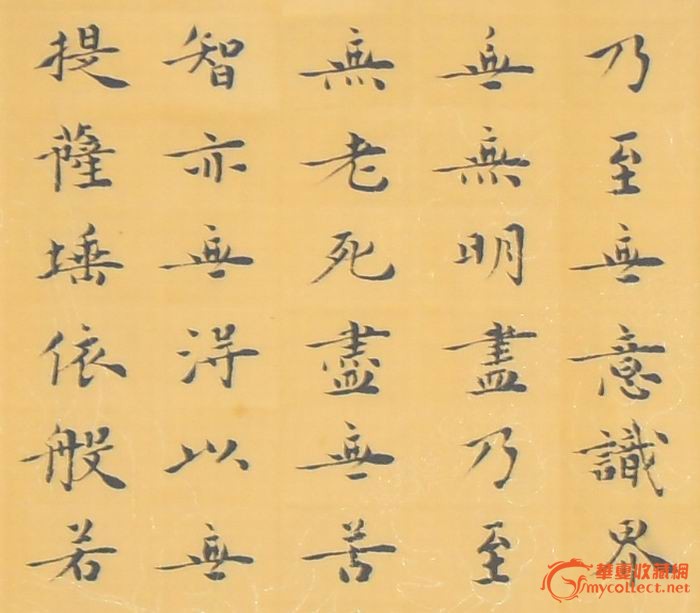 乃至無意識界
無無明盡乃至
無老死盡無苦
智亦無得以無
提薩埵依般若
華夏收藏網
mycollect.net